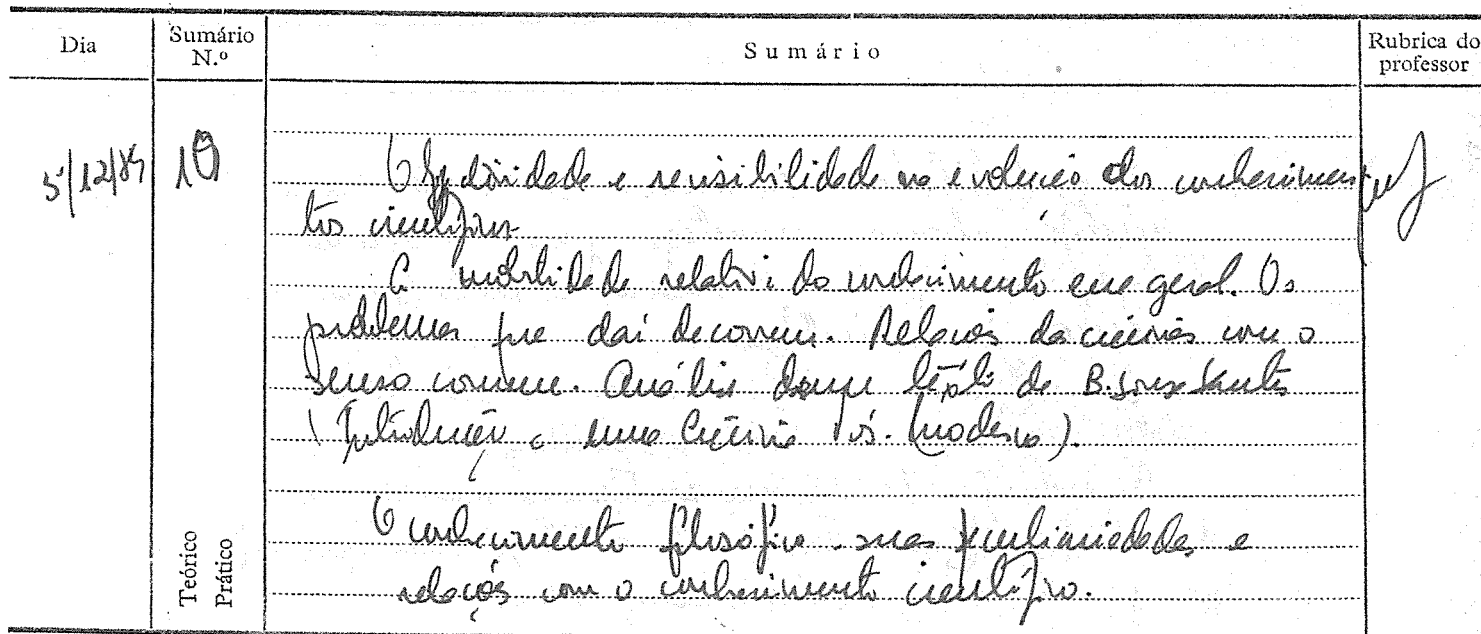 Dia
Sumário N.º
Sumário
Rubrica do professor
5/12/89
10
e revisibilidade na evolução dos conhecimen
tos científicos
A relativa do conhecimento em geral. Os
problemas que daí decorrem. Relações da ciência com o
senso comum. Análise dum texto de B. Sousa Santos
(Introdução a uma Ciência Pós-Moderna).
O conhecimento filosófico - suas peculiaridades e
relações com o conhecimento científico.
Teórico
Prático